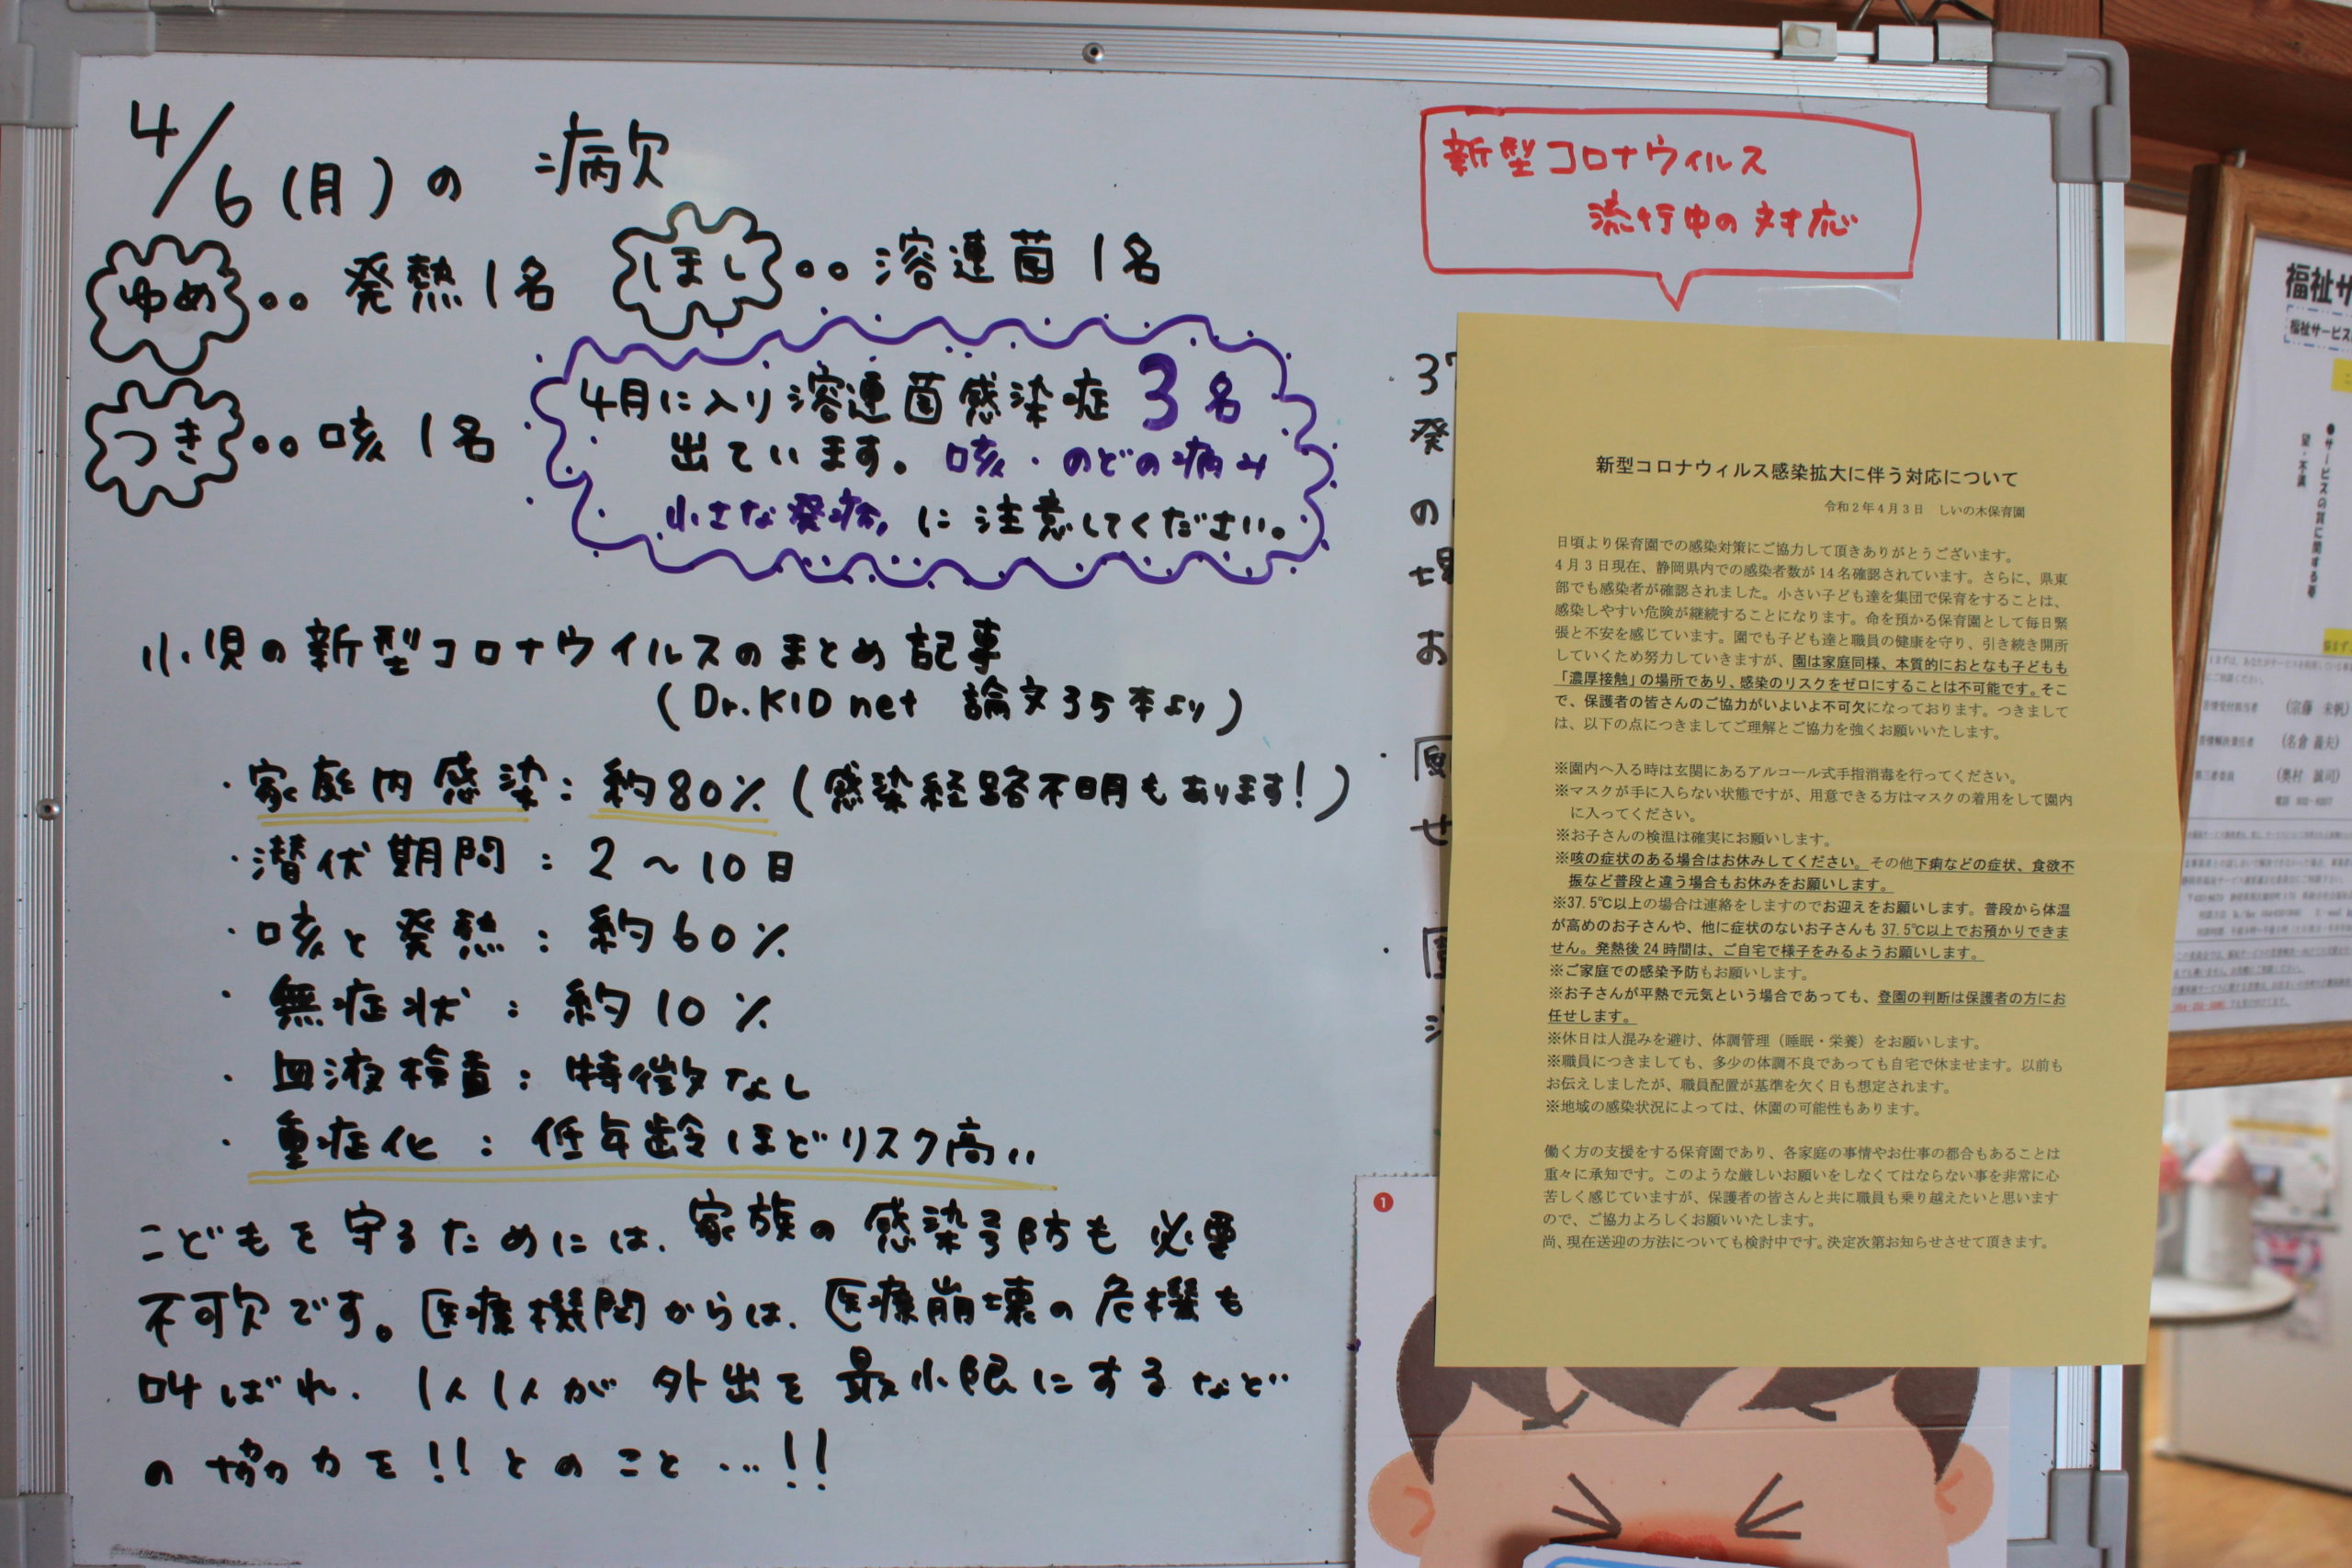 4/6(月)の 病欠
ゆめ 。。 発熱1名
ほし 。。 溶連菌 1名
つき 。。 咳 1名
4月に入り溶連菌感染症 3名
出ています。咳・のどの痛み
小さな発疹 に注意してください。
小児の新型コロナウイルスのまとめ記事
(Dr.KID net 論文35本より)
・家庭内感染:約80%(感染経路不明もあります!)
・潜伏期間:2〜10日
・咳と発熱:約60%
・無症状:約10%
・血液検査:特徴なし
・重症化:低年齢ほどリスク高い
こどもを守るためには、家族の感染予防も必要
不可欠です。医療機関からは、医療崩壊の危機も
叫ばれ、1人1人が外出を最小限にするなど
の協力を!!とのこと…!!
新型コロナウィルス
流行中の対応
37
発
の
場
お
せ
新型コロナウィルス感染拡大に伴う対応について
令和2年4月3日 しいの木保育園
日頃より保育園での感染対策にご協力して頂きありがとうございます。
4月3日現在、静岡県内での感染者数が14名確認されています。さらに、県東
部でも感染者が確認されました。小さい子ども達を集団で保育をすることは、
感染しやすい危険が継続することになります。命を預かる保育園として毎日緊
張と不安を感じています。園でも子ども達と職員の健康を守り、引き続き開所
していくため努力していきますが、園は家庭同様、本質的におとなも子どもも
「濃厚接触」の場所であり、感染のリスクをゼロにすることは不可能です。そこ
で、保護者の皆さんのご協力がいよいよ不可欠になっております。つきまして
は、以下の点につきましてご理解とご協力を強くお願いいたします。
※園内へ入る時は玄関にあるアルコール式手指消毒を行ってください。
※マスクが手に入らない状態ですが、用意できる方はマスクの着用をして園内
に入ってください。
※お子さんの検温は確実にお願いします。
※咳の症状のある場合はお休みしてください。その他下痢などの症状、食欲不
振など普段と違う場合もお休みをお願いします。
※37.5℃以上の場合は連絡をしますのでお迎えをお願いします。普段から体温
が高めのお子さんや、他に症状のないお子さんも37.5℃以上でお預かりできま
せん。発熱後24時間は、ご自宅で様子をみるようお願いします。
※ご家庭での感染予防もお願いします。
※お子さんが平熱で元気という場合であっても、登園の判断は保護者の方にお
任せします。
※休日は人混みを避け、体調管理（睡眠・栄養）をお願いします。
※職員につきましても、多少の体調不良であっても自宅で休ませます。以前も
お伝えしましたが、職員配置が基準を欠く日も想定されます。
※地域の感染状況によっては、休園の可能性もあります。
働く方の支援をする保育園であり、各家庭の事情やお仕事の都合もあることは
重々に承知です。このような厳しいお願いをしなくてはならない事を非常に心
苦しく感じていますが、保護者の皆さんと共に職員も乗り越えたいと思います
ので、ご協力よろしくお願いいたします。
尚、現在送迎の方法についても検討中です。決定次第お知らせさせて頂きます。
1
福祉サ
福祉サービス
●サービスの質に関する等
望・不満
(名倉 義夫)
(奥村 誠司)